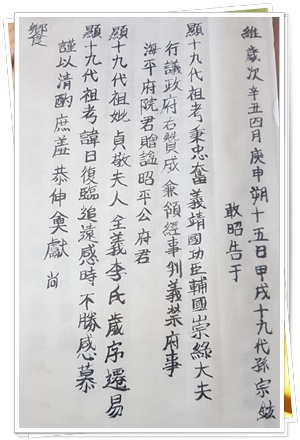 維 歲次 辛丑四月 庚申 朔 十五日 甲戌 十九代孫 宗鉉
敢昭告于
顯十九代祖考 秉忠奮義靖國功臣 輔國崇綠大夫
行議政府右贊成 兼領經事 判義禁府事
海平府院君 贈諡昭平公 府君
顯十九代祖妣 貞敬夫人 全義李氏 歲序遷易
顯十九代祖考 諱日復臨 追遠感時 不勝感慕
謹以清酌庶羞 恭伸奠獻 尙
饗